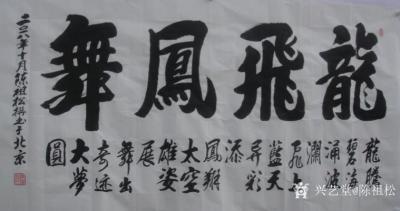 龍飛鳳舞
龍騰
碧海
涌波
瀾
飛上
藍天
异彩
添
鳳翔
太空
雄姿
展
舞出
奇迹
大夢
圓
二〇一八年十月陳祖松撰书于北京
兴艺堂@陈祖松